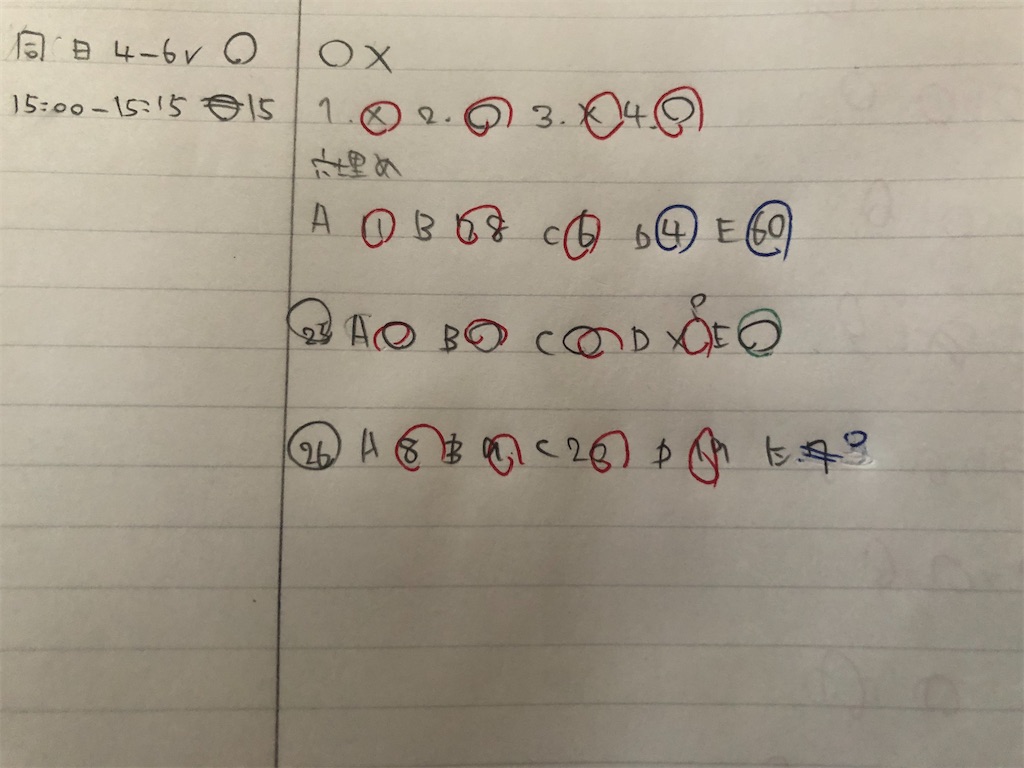 同日 4-6✓ ○
15:00-15:15 15
○×
1.× 2.○ 3.× 4.○
穴埋め
A 1 B 38 C 6 D 4 E 60
25 A ○ B ○ C ○ D × E ○
26 A 8 B C 26 D E